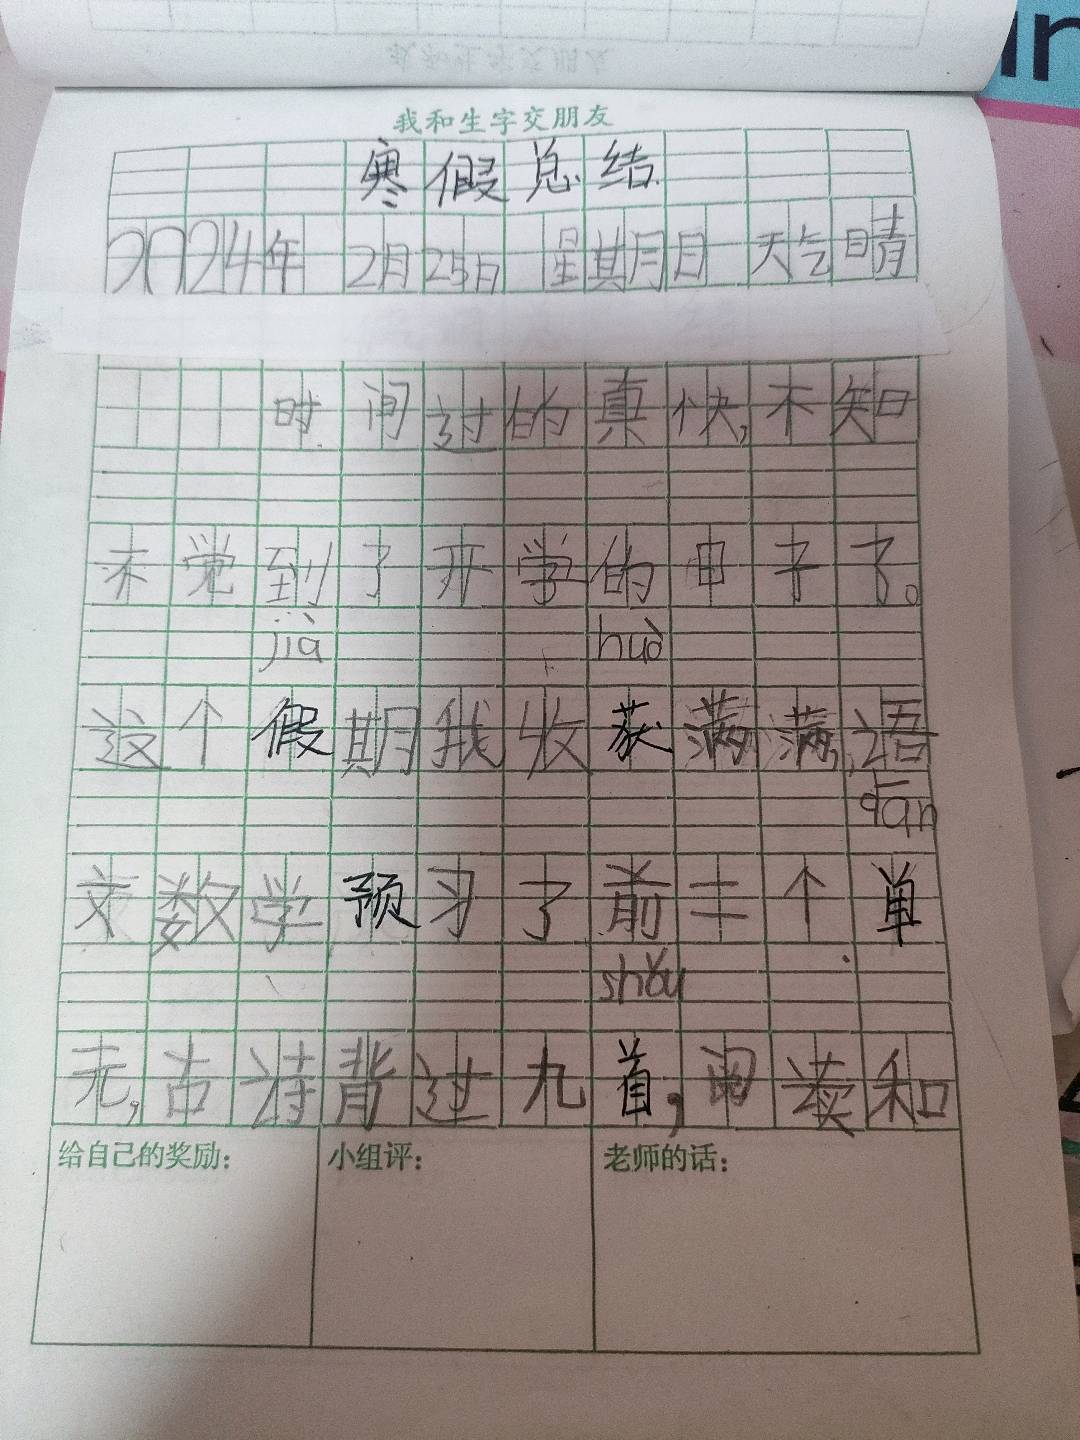 我和生字交朋友
寒假总结
2024年 2月25日 星期日 天气晴
时间过的真快,不知
不觉到了开学的日子了。
jià huò
这个假期我收获满满,语
dān
文数学预习了前二个单
shǒu
元,古诗背过九首,阅读和
给自己的奖励: 小组评: 老师的话: